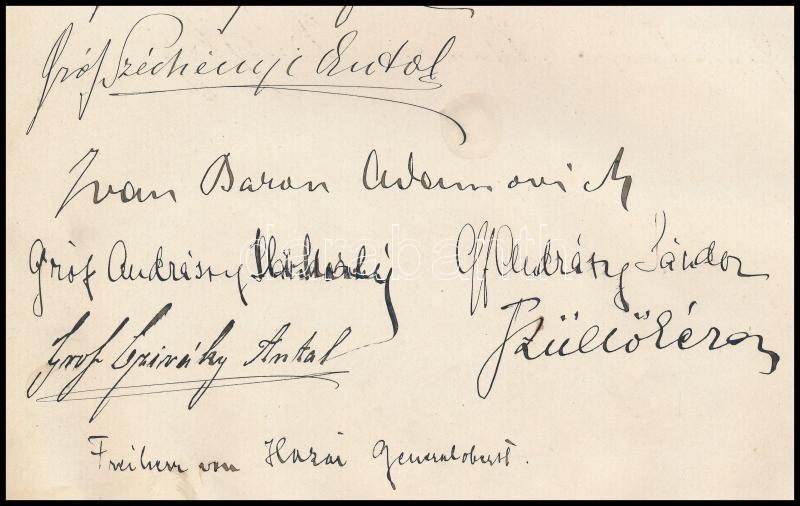 Gróf Széchényi Antal
Ivan Baron Adamovich
Gróf Andrássy
Gf Andrássy Sándor
Gróf Cziráky Antal
Szüllő Géza
Freiherr von Hazai Generaloberst.
darabanth